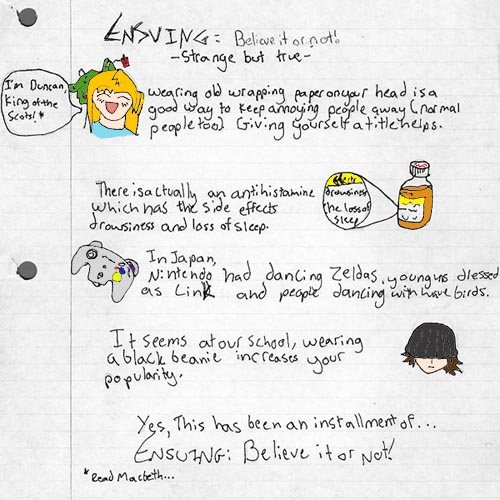 ENSUING: Believe it or not!
-Strange but true-
I'm Duncan,
King of the
Scots!*
wearing old wrapping paper on your head is a
good way to keep annoying people away (normal
people too). Giving yourself a title helps.
There is actually an antihistamine
which has the side effects
drowsiness and loss of sleep.
effects
drowsiness
the loss of
sleep
In Japan,
Nintendo had dancing Zeldas, youguns dressed
as Link and people dancing with wave birds.
It seems at our school, wearing
a black beanie increases your
popularity.
Yes, This has been an installment of...
ENSUING: Believe it or Not!
*Read Macbeth...